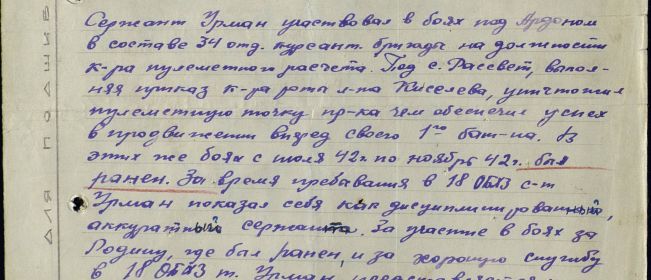 Сержант Урман участвовал в боях под Ардоном
в составе 34 отд. курсант. бригады на должности
к-ра пулеметного расчета. Под с. Рассвет, выпол-
няя приказ к-ра роты л-та Киселева, уничтожил
пулеметную точку пр-ка чем обеспечил успех
в продвижении вперед своего 1го бат-на. В
этих же боях с июля 42г. по ноябрь 42г. был
ранен. За время пребывания в 18 ОБПЗ с-т
Урман показал себя как дисциплинированный,
аккуратный сержант. За участие в боях за
Родину, где был ранен, и за хорошую службу
в 18 ОБПЗ т. Урман
ДЛЯ ПОДШИВ